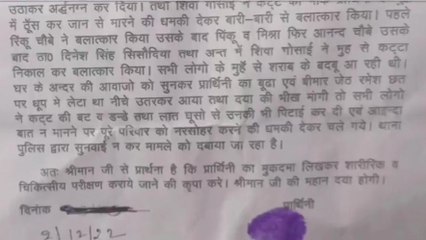 उठाकर अर्द्धनग्न कर दिया। तथा शिवा गोसाई ने
में ठूँस कर जान से मारने की धमकी देकर बारी-बारी से बलात्कार किया। पहले
रिंकू चौबे ने बलात्कार किया उसके बाद पिंकू व मिश्रा फिर आनन्द चौबे उसके
बाद ठा0 दिनेश सिंह सिसौदिया तथा अन्त में शिवा गोसाई ने मुह से कट्टा
निकाल कर बलात्कार किया। सभी लोगो के मुहँ से शराब के बदबू आ रही थी।
घर के अन्दर की आवाजो को सुनकर प्रार्थिनी का बूढा एवं बीमार जेठ रमेश छत
पर धूप मे लेटा था नीचे उतरकर आया तथा दया की भीख मांगी तो सभी लोगो
ने कट्टे की बट व डन्डे तथा लात घूसो से उनकी भी पिटाई कर दी एवं आइन्दा
बात न मानने पर पूरे परिवार को नरसंहार करने की धमकी देकर चले गये। थाना
पुलिस द्वारा सुनवाई न कर मामले को दबाया जा रहा है।
अतः श्रीमान जी से प्रार्थना है कि प्रार्थिनी का मुकदमा लिखकर शारीरिक व
चिकित्सीय परीक्षण कराये जाने की कृपा करे। श्रीमान जी की महान दया होगी।
दिनांक
प्रार्थिनी
2/12/22